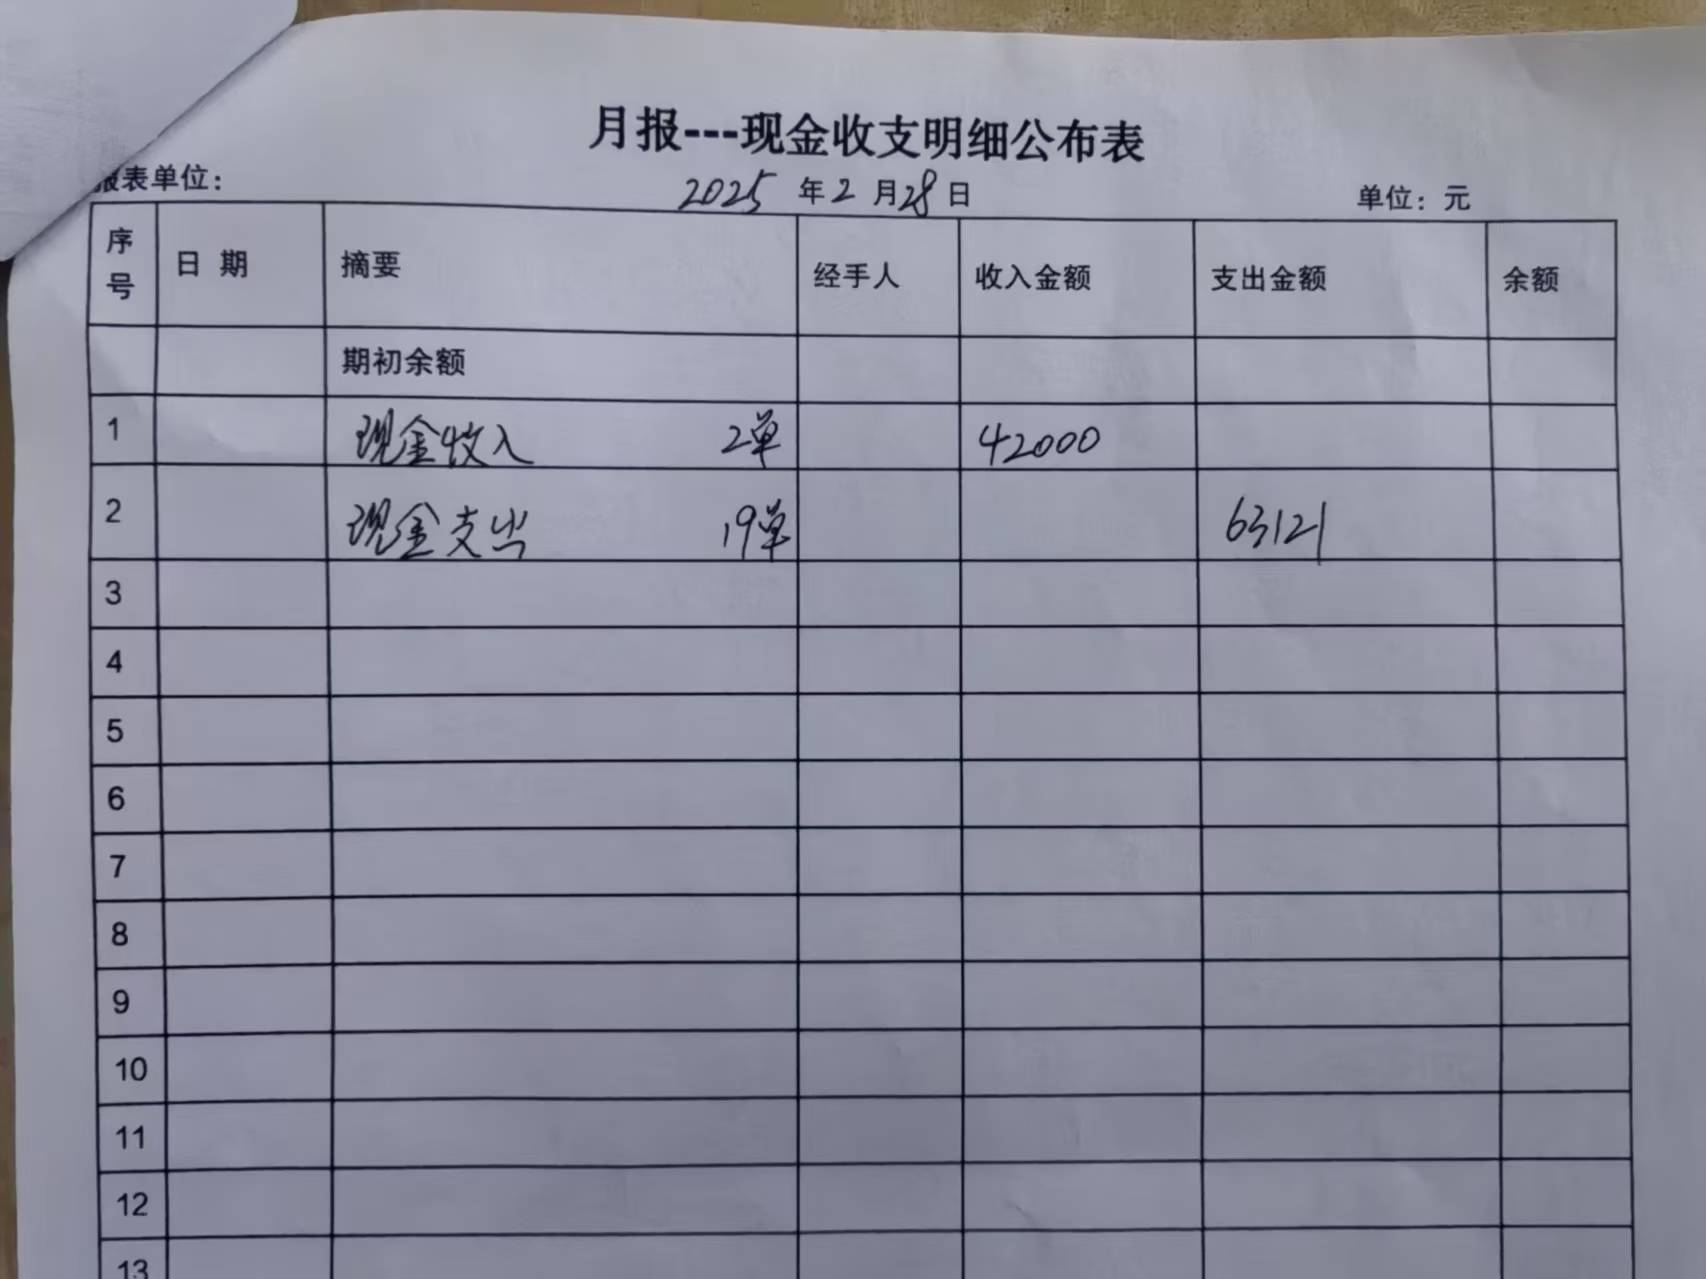 月报---现金收支明细公布表
报表单位：
2025 年 2 月 28 日 单位：元
序号 日 期 摘要 经手人 收入金额 支出金额 余额
期初余额
1 现金收入 2单 42000
2 现金支出 19单 63121
3
4
5
6
7
8
9
10
11
12
13